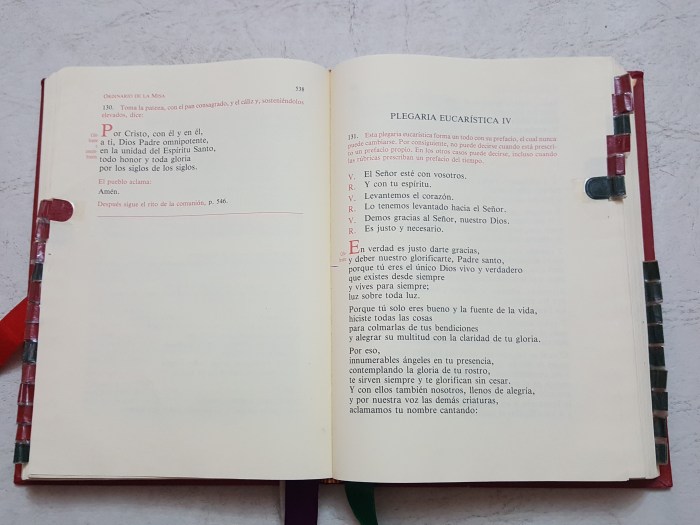 538
ORDINARIO DE LA MISA
130. Toma la patena, con el pan consagrado, y el cáliz y, sosteniéndolos
elevados, dice:
Por Cristo, con él y en él,
a ti, Dios Padre omnipotente,
en la unidad del Espíritu Santo,
todo honor y toda gloria
por los siglos de los siglos.
El pueblo aclama:
Amén.
Después sigue el rito de la comunión, p. 546.
PLEGARIA EUCARÍSTICA IV
131. Esta plegaria eucarística forma un todo con su prefacio, el cual nunca
puede cambiarse. Por consiguiente, no puede decirse cuando está prescri-
to un prefacio propio. En los otros casos puede decirse, incluso cuando
las rúbricas prescriban un prefacio del tiempo.
V. El Señor esté con vosotros.
R. Y con tu espíritu.
V. Levantemos el corazón.
R. Lo tenemos levantado hacia el Señor.
V. Demos gracias al Señor, nuestro Dios.
R. Es justo y necesario.
En verdad es justo darte gracias,
y deber nuestro glorificarte, Padre santo,
porque tú eres el único Dios vivo y verdadero
que existes desde siempre
y vives para siempre;
luz sobre toda luz.
Porque tú solo eres bueno y la fuente de la vida,
hiciste todas las cosas
para colmarlas de tus bendiciones
y alegrar su multitud con la claridad de tu gloria.
Por eso,
innumerables ángeles en tu presencia,
contemplando la gloria de tu rostro,
te sirven siempre y te glorifican sin cesar.
Y con ellos también nosotros, llenos de alegría,
y por nuestra voz las demás criaturas,
aclamamos tu nombre cantando: